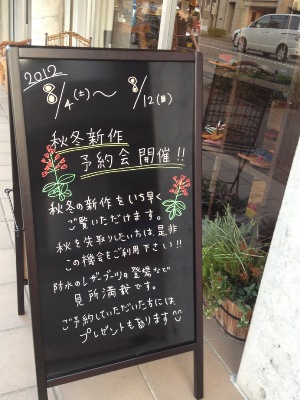 2012
8/4(土)～8/12(日)
秋冬新作
予約会開催!!
秋冬の新作をいち早く
ご覧いただけます。
秋を先取りしたい方は是非
この機会をご利用下さい!!
防水のレザーブーツの登場など
見所満載です。
ご予約していただいた方には
プレゼントもあります